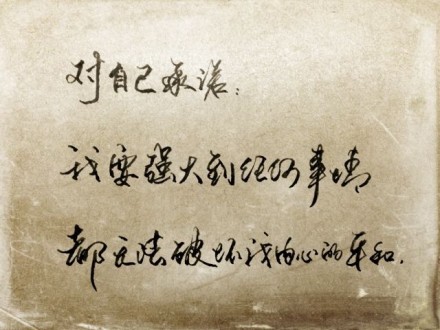 对自己承诺：
我要强大到任何事情
都无法破坏我内心的平和.